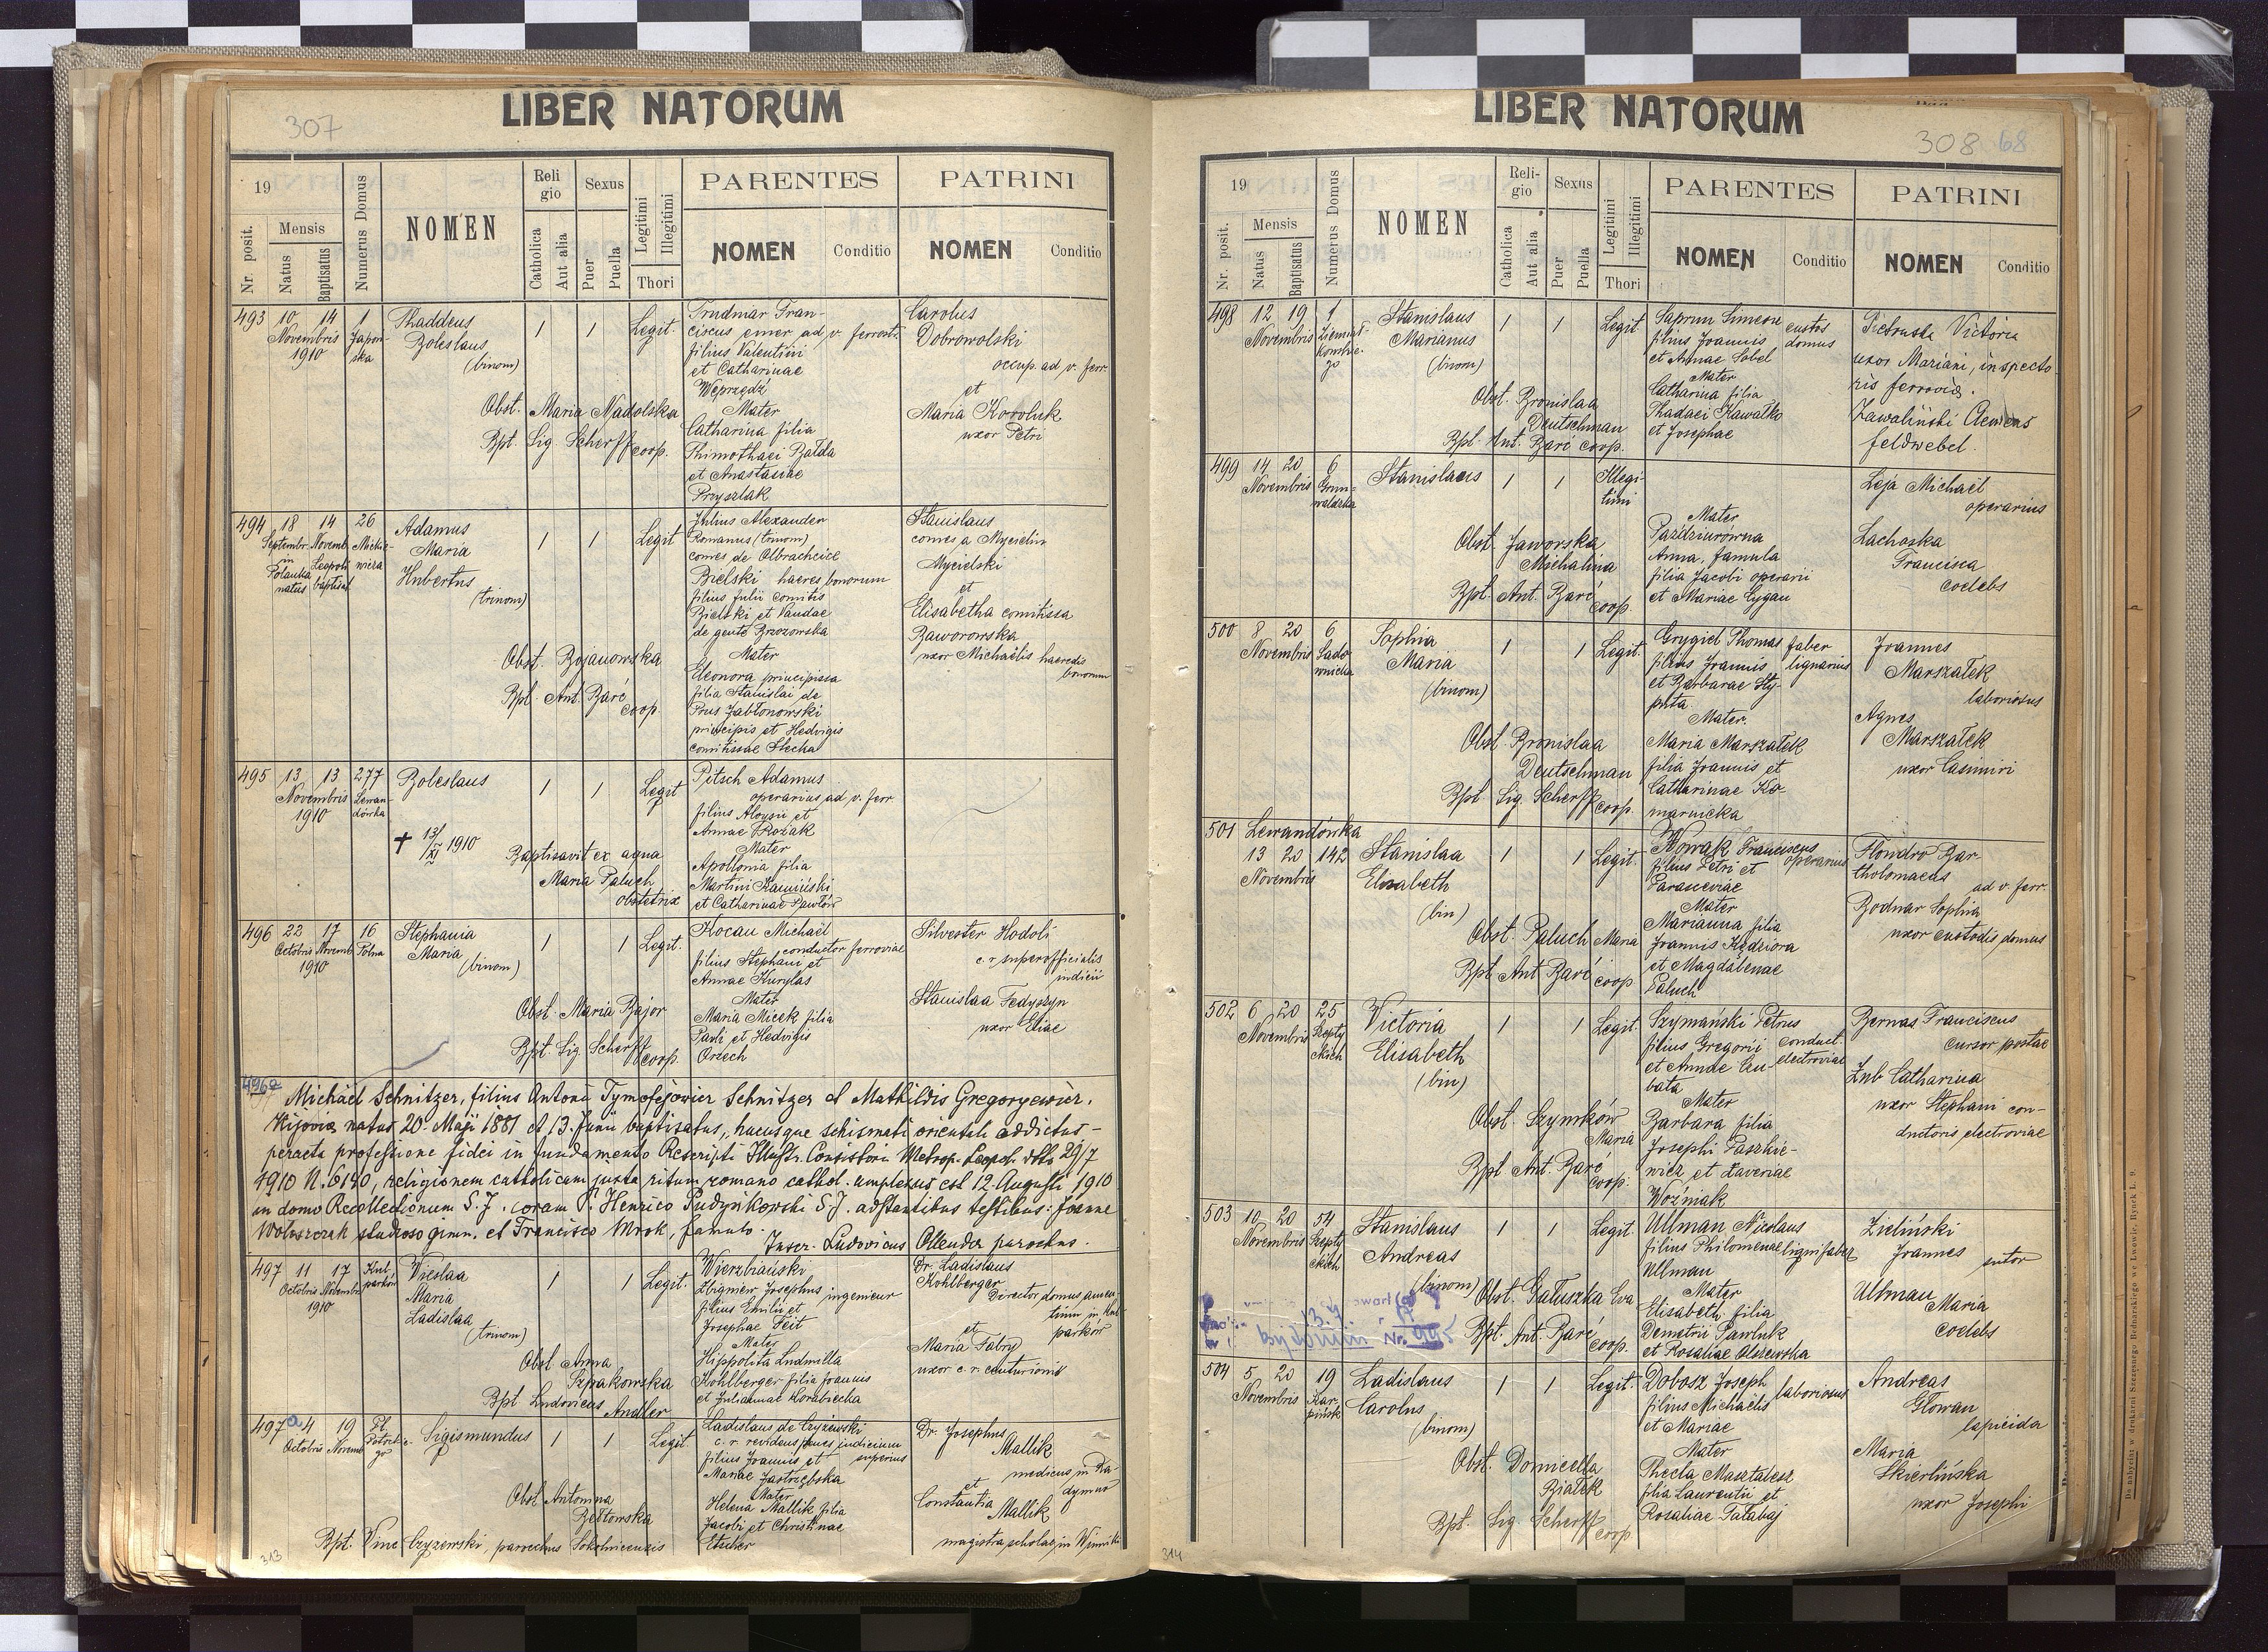 307
LIBER NATORUM
19
Mensis
Nr. posit.
Natus
Baptisatus
Numerus Domus
NOMEN
Religio
Catholica
Aut alia
Sexus
Puer
Puella
Legitimi
Illegitimi
Thori
PARENTES
NOMEN
Conditio
PATRINI
NOMEN
Conditio
493 10 14 1
Novembris
1910
Japon-
ska
Thaddeus
Boleslaus
(binom)
1 1 Legit.
Obst. Maria Nadolska
Bpt. Sig. Scherff coop.
Fran-
ciscus emer ad v. ferrost.
filius Valentini
et Catharinae
Mater
Catharina filia
Thimothaei Bałda
et Anastasiae
Przyszlak
Carolus
Dobrowolski
occup. ad v. ferr
et
Maria Koroluk
uxor Petri
494 18 14 26
Septembr. Novemb. Mickie-
in Leopoli wicza
natus baptisat
Adamus
Maria
Hubertus
(trinom)
1 1 Legit
Obst. Bojanowska
Bpt. Ant. Baré coop.
Julius Alexander
Romanus (trinom)
comes de Olbrachcice
Bielski haeres bonorum
filius Julii comitis
Bielski et Vandae
de gente Brzozowska
Mater
Eleonora principissa
filia Stanislai de
Prus Jabłonowski
principis et Hedvigis
comitissae Stecha
Stanislaus
comes a Mycielin
Mycielski
et
Elisabetha comitissa
Baworowska
uxor Michaëlis haeredis
bonorum
495 13 13 277
Novembris
1910
Lewan-
dówka
Boleslaus
1 1 Legit
† 13/XI 1910
Baptisavit ex aqua
Maria Paluch
obstetrix
Pitsch Adamus
operarius ad v. ferr.
filius Aloysii et
Annae Prożak
Mater
Apollonia filia
Martini Kamiński
et Catharinae Pawłów
496 22 17 16
Octobris Novemb.
1910
Polna
Stephania
Maria
(binom)
1 1 Legit.
Obst. Maria Bajor
Bpt. Sig. Scherff coop.
Kocau Michaël
conductor ferroviae
filius Stephani et
Annae Kurylas
Mater
Maria Micek filia
Pauli et Hedvigis
Orzech
Silvester Hodoli
c. r. superofficialis
iudicii
Stanislaa Fedyszyn
uxor Eliae
496a
Michaël Schnitzer, filius Antoni Tymofejowicz Schnitzer et Mathildis Gregoryewicz,
Kijoviae natus 20. Maji 1881 et 13. Junii baptisatus, hucusque schismati orientali addictus –
peracta professione fidei in fundamento Rescripti Illustr. Consistorii Metrop. Leopol. dtto 29/7
1910 N. 6140, religionem catholicam juxta ritum romano cathol. amplexus est 12. Augusti 1910
in domo Recollectionum S. J. coram P. Henrico Pudynkowski S. J. adstantibus testibus: Joanne
Wołoszczak studioso gimn. et Francisco Mrok, famulo.
Inscr. Ludovicus Ollender parochus.
497 11 17
Octobris Novembr.
1910
Kul-
parków
Vieslaa
Maria
Ladislaa
(trinom)
1 1 Legit.
Obst. Anna
Szpakowska
Bpt. Ludovicus Andler
Wierzbiański
Zbigniew Josephus ingenieur
filius Emilii et
Josephae Feit
Mater
Hippolita Ludmilla
Kohlberger filia Joannis
et Juliannae Korabiecka
Dr. Ladislaus
Kohlberger
Director domus amen-
tium in Kul-
parków
et
Maria Fabry
uxor c. r. centurionis
497a 4 19 Pl.
Octobris Novemb.
Sigismundus
1 1 Legit.
Obst. Antonina
Bełtowska
Bpt. Vinc. Czyżewski, parochus Sokolnicensis
Ladislaus de Czyżewski
c. r. revidens penes judicium
superius
filius Joannis et
Mariae Jastrzębska
Mater
Helena Mallik filia
Jacobi et Christinae
Etscher
Dr. Josephus
Mallik
medicus in Ra-
dymno
et
Constantia
Mallik
magistra scholae in Winniki
313
308 68
LIBER NATORUM
19
Mensis
Nr. posit.
Natus
Baptisatus
Numerus Domus
NOMEN
Religio
Catholica
Aut alia
Sexus
Puer
Puella
Legitimi
Illegitimi
Thori
PARENTES
NOMEN
Conditio
PATRINI
NOMEN
Conditio
498 12 19 1
Novembris
Stanislaus
Marianus
(binom)
1 1 Legit
Obst. Bronislaa
Deutschman
Bpt. Ant. Baré coop.
Saprun Simeon custos
filius Joannis domus
et Annae Sobel
Mater
Catharina filia
Thadaei Kawałko
et Josephae
Pietruska Victoria
uxor Mariani, inspecto
ris ferroviae.
Zawaliński Clemens
feldwebel.
499 14 20 6
Novembris
Grun-
waldzka
Stanislaus
1 1 Illegi-
timi
Obst. Jaworska
Michalina
Bpt. Ant. Baré coop.
Mater
Paździurówna
Anna, famula
filia Jacobi operarii
et Mariae Cygan
Leja Michaël
operarius
Lachoska
Francisca
coelebs
500 8 20 6
Novembris
Sado-
wnicka
Sophia
Maria
(binom)
1 1 Legit.
Obst. Bronislaa
Deutschman
Bpt. Sig. Scherff coop.
Grygiel Thomas faber
filius Joannis lignarius
et Barbarae Sty-
puła
Mater.
Maria Marszałek
filia Joannis et
Catharinae Ko-
marnicka
Joannes
Marszałek
laboriosus
Agnes
Marszałek
uxor Casimiri
501 Lewandówka
13 20 142
Novembris
Stanislaa
Elisabeth
(bin)
1 1 Legit.
Obst. Paluch Maria
Bpt. Ant. Baré coop.
Nowak Franciscus
operarius
filius Petri et
Parasceviae
Mater
Marianna filia
Joannis Kędziora
et Magdalenae
Paluch
Flondro Bar-
tholomaeus
ad v. ferr.
Bodnar Sophia
uxor custodis domus
502 6 20 25
Novembris
Szepty-
ckich
Victoria
Elisabeth
(bin)
1 1 Legit.
Obst. Szymków
Maria
Bpt. Ant. Baré coop.
Szymański Petrus
filius Gregorii conduct.
et Annae electroviae
Mater
Barbara filia
Josephi Paszkie-
wicz et Xaveriae
Woźniak
Bernas Franciscus
cursor postae
Zub Catharina
uxor Stephani con-
ductoris electroviae
503 10 20 54
Novembris
Szepty-
ckich
Stanislaus
Andreas
(binom)
1 1 Legit.
Obst. Gałuszka Eva
Bpt. Ant. Baré coop.
Ullman Nicolaus
filius Philomenae ligni faber
Ullman
Mater
Elisabeth filia
Demetrii Pawluk
et Rosaliae Olszewska
Zieliński
Joannes
sutor
Ullman
Maria
coelebs
Bytomiu Nr. 995
504 5 20 19
Novembris
Kar-
pińsk
Ladislaus
Carolus
(binom)
1 1 Legit.
Obst. Domicella
Białek
Bpt. Sig. Scherff coop.
Dobosz Joseph laboriosus
filius Michaëlis
et Mariae
Mater
Thecla Masztalerz
filia Laurentii et
Rosaliae Tatabaj
Andreas
Głowan
lapicida
Maria
Skierlińska
uxor Josephi
314
Do nabycia w drukarni Szczęsnego Bednarskiego we Lwowie, Rynek L. 9.